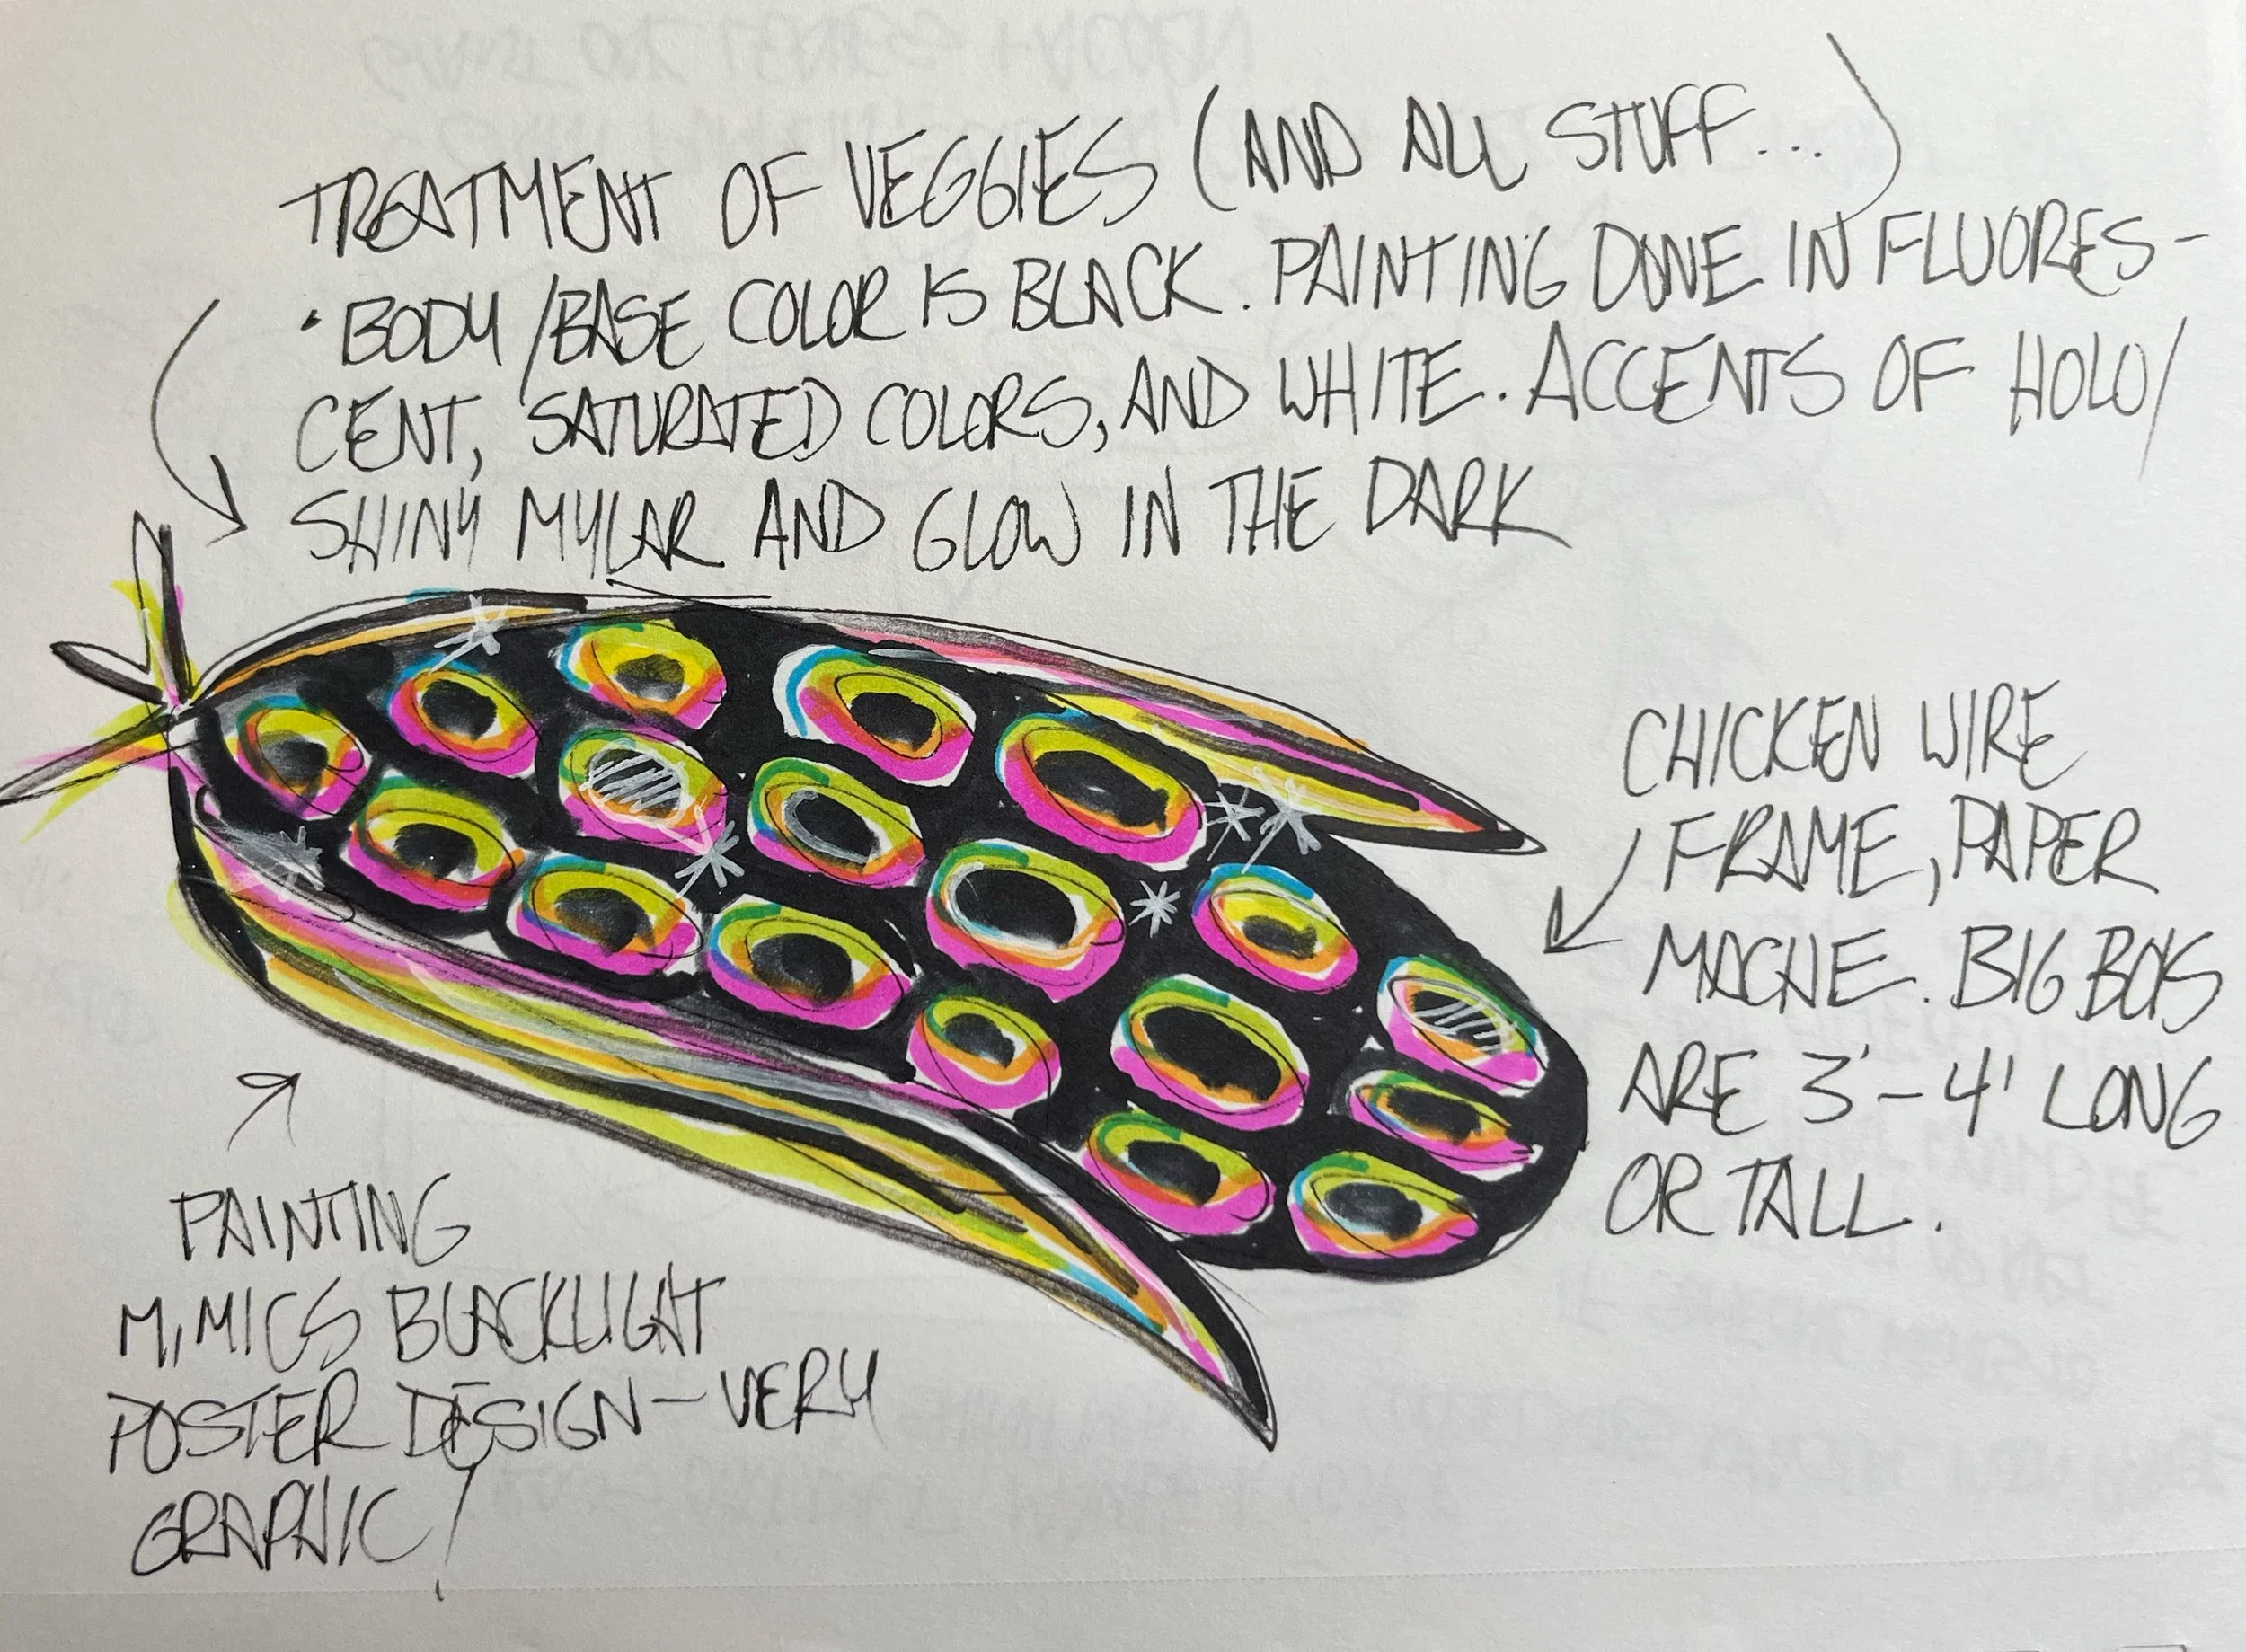 TREATMENT OF VEGGIES (AND ALL STUFF...)
• BODY/BASE COLOR IS BLACK. PAINTING DONE IN FLUORES-
CENT, SATURATED COLORS, AND WHITE. ACCENTS OF HOLO/
SHINY MYLAR AND GLOW IN THE DARK
CHICKEN WIRE
FRAME, PAPER
MACHE. BIG BOIS
ARE 3'-4' LONG
OR TALL.
PAINTING
MIMICS BLACKLIGHT
POSTER DESIGN-VERY
GRAPHIC!